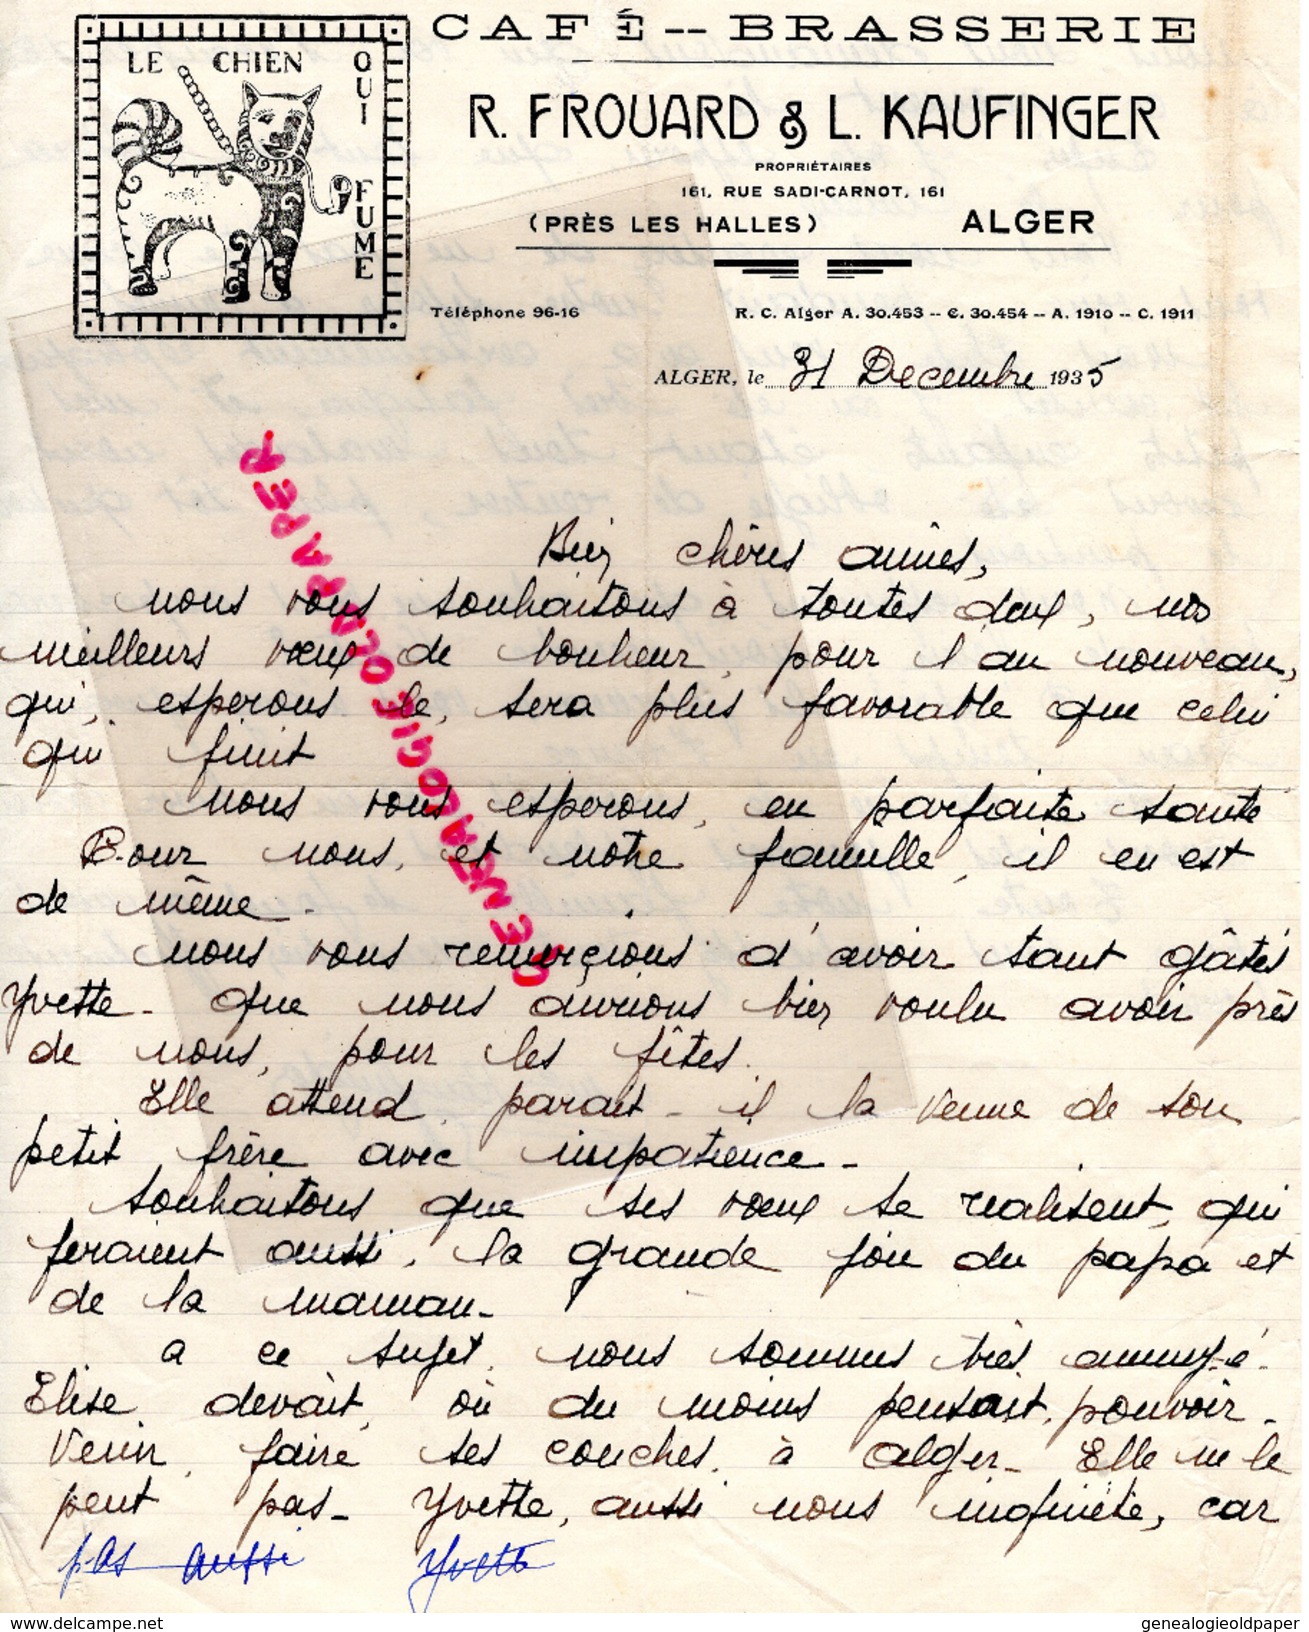 CAFÉ -- BRASSERIE
LE CHIEN QUI FUME
R. FROUARD & L. KAUFINGER
PROPRIÉTAIRES
161, RUE SADI-CARNOT, 161
(PRÈS LES HALLES) ALGER
Téléphone 96-16 R. C. Alger A. 30.453 -- C. 30.454 -- A. 1910 -- C. 1911
ALGER, le 31 Decembre 1935
GENEALOGIEOLDPAPER
Bien chères amies,
nous vous souhaitons à toutes deux, nos
meilleurs vœux de bonheur, pour l'an nouveau,
qui, esperons le, sera plus favorable que celui
qui finit
nous vous esperons, en parfaite sante
Pour nous, et notre famille, il en est
de même.
nous vous remerçions d'avoir tant gâtés
Yvette - que nous aurions bien voulu avoir près
de nous, pour les fêtes.
Elle attend, parait-il la venue de son
petit frère avec impatience -
Souhaitons que ses vœux se realisent, qui
feraient aussi, la grande joie du papa et
de la maman -
a ce sujet, nous sommes très ennuyé -
Elise devait, où du moins pensait, pouvoir -
Venir, faire ses couches, à alger - Elle ne le
peut pas - Yvette, aussi nous inquiète, car
pas aussi Yvette
delcampe.net genealogieoldpaper